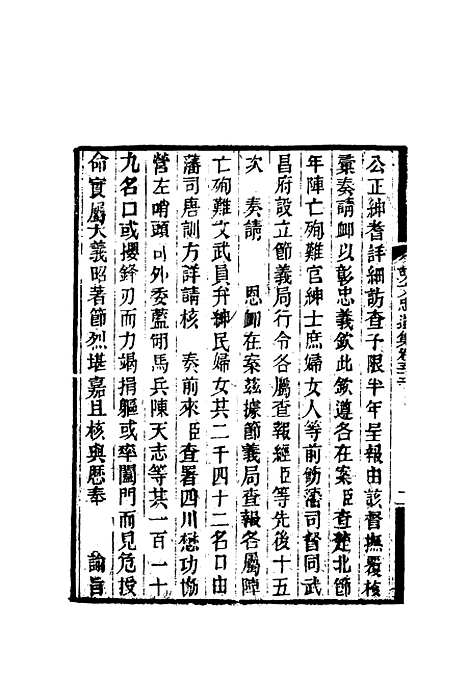 公正紳耆詳細訪查予限半年呈報由該督撫覆核
彙奏請卹以彰忠義欽此欽遵各在案臣查楚北節
年陣亡殉難官紳士庶婦女人等前飭藩司督同武
昌府設立節義局行令各屬查報經臣等先後十五
次 奏請 恩卹在案茲據節義局查報各屬陣
亡殉難文武員弁紳民婦女共二千四十二名口由
藩司唐訓方詳請核 奏前來臣查署四川懋功協
營左哨頭司外委藍翎馬兵陳天志等共一百一十
九名口或攖鋒刃而力竭捐軀或率闔門而見危授
命實屬大義昭著節烈堪嘉且核與歷奉 諭旨